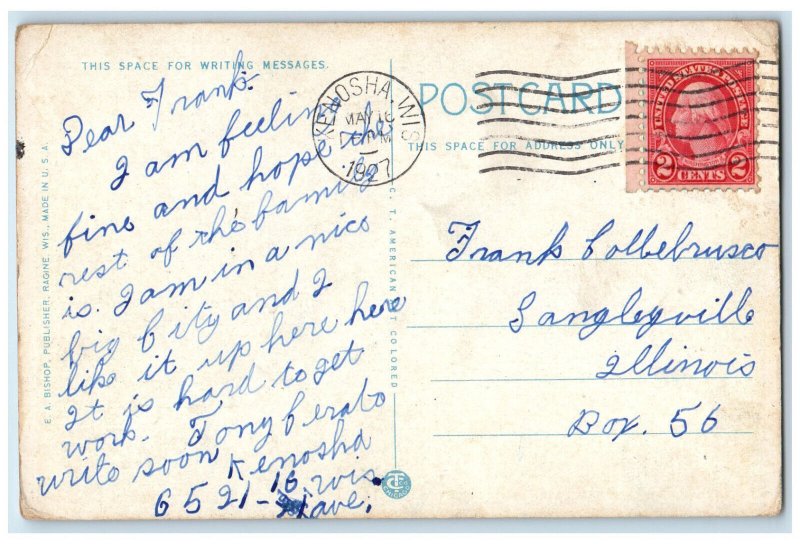 THIS SPACE FOR WRITING MESSAGES.
Dear Frank:
I am feeling
fine and hope the
rest of the family
is. I am in a nice
big City and I
like it up here here
It is hard to get
work. Tony Cerato
write soon Kenosha
wis.
6521-16 ave.
E. A. BISHOP, PUBLISHER, RACINE, WIS., MADE IN U. S. A.
C. T. AMERICAN ART COLORED
KENOSHA, WIS
MAY 16
PM
1927
POST CARD
THIS SPACE FOR ADDRESS ONLY
UNITED STATES POSTAGE
2 CENTS 2
Frank Collebrusco
Langleyville
Illinois
Box. 56